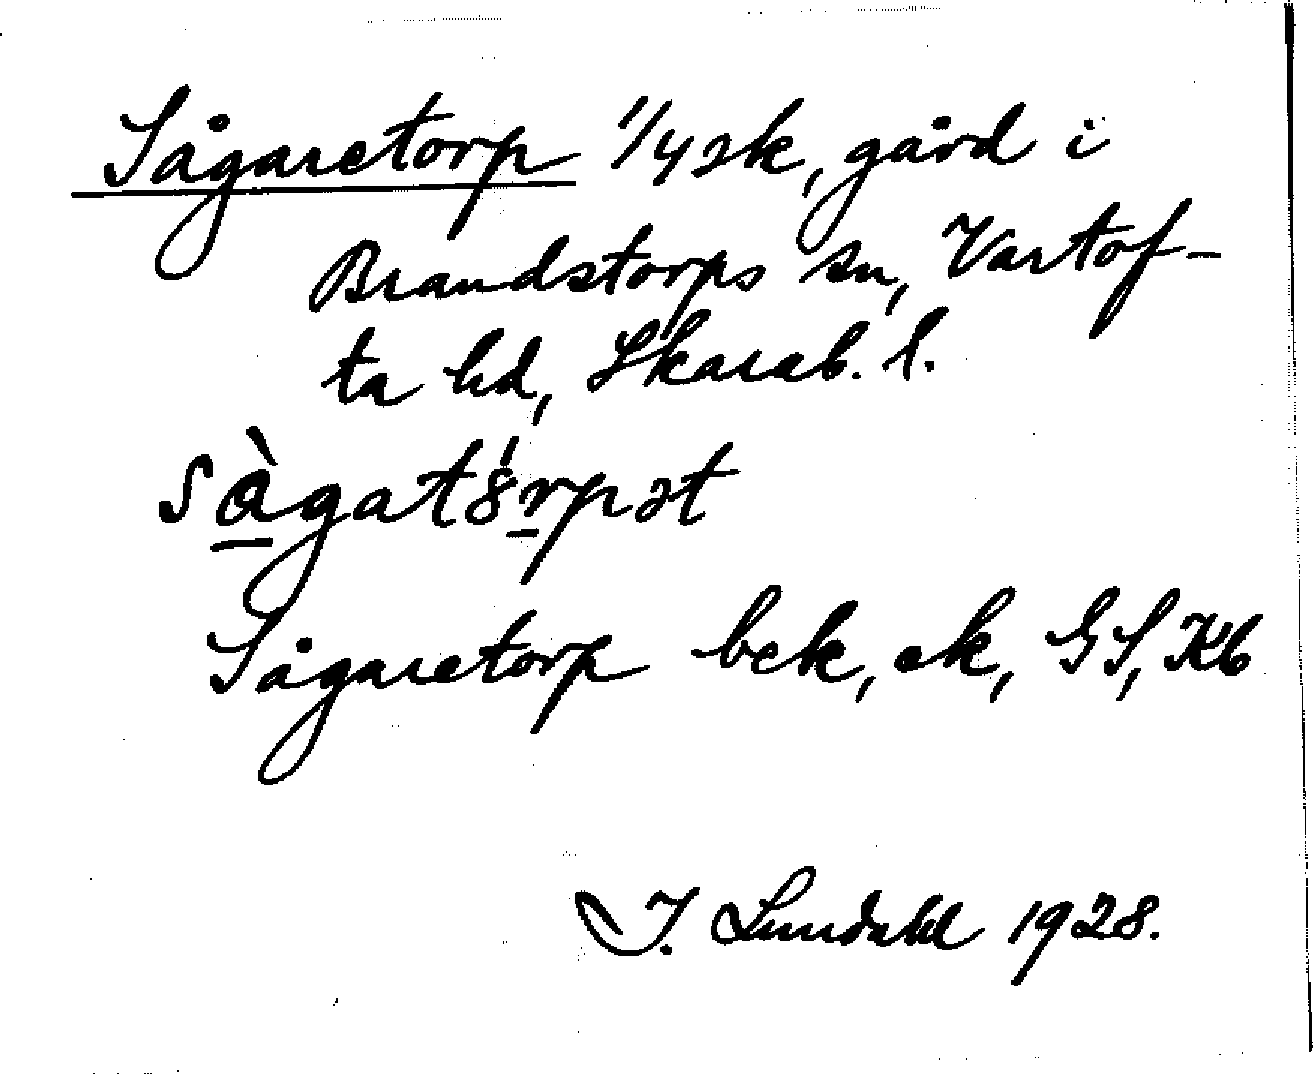 Sågaretorp 1/4 sk, gård i
Brandstorps sn, Vartof-
ta hd, Skarab. l.
så̀gat8́rpət
Sågaretorp bek, ek, GS, Kb
I. Lundahl 1928.